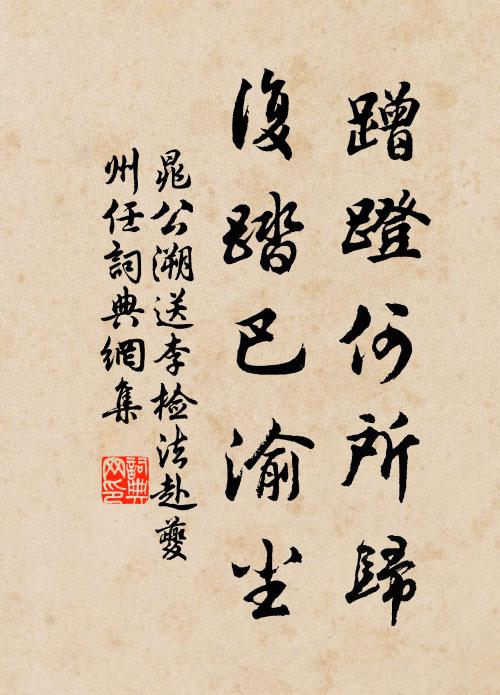 蹭蹬何所歸
復踏巴渝尘
晁公溯送李检法赴夔
州任詞典網集
詞典
网印